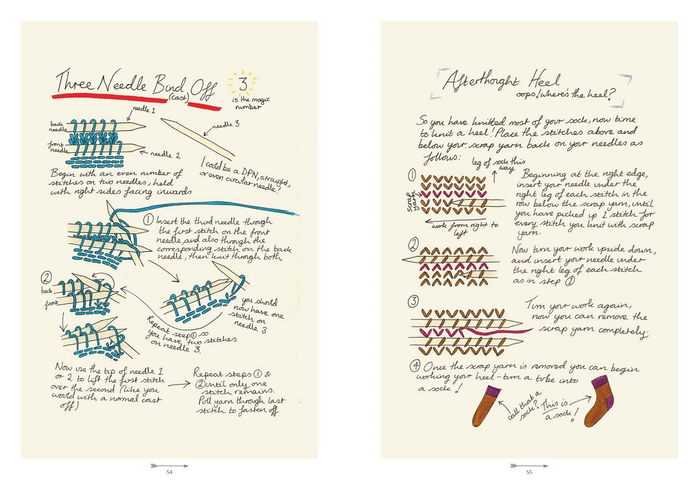 Three Needle Bind Off
(cast)
3
is the magic
number
needle 1
back
needle
needle 3
front
needle
needle 2
(could be a DPN, straight,
or even circular needle!)
Begin with an even number of
stitches on two needles, held
with right sides facing inwards
① Insert the third needle through
the first stitch on the front
needle and also through the
corresponding stitch on the back
needle, then knit through both
②
back
front
you should
now have one
stitch on
needle 3
Repeat step ① so
you have two stitches
on needle 3
Now use the tip of needle 1
or 2 to lift the first stitch
over the second (like you
would with a normal cast
off)
Repeat steps ① &
② until only one
stitch remains.
Pull yarn through last
stitch to fasten off.
54
Afterthought Heel
oops/where's the heel?
So you have knitted most of your sock, now time
to knit a heel! Place the stitches above and
below your scrap yarn back on your needles as
follows:
leg of sock this
way
①
scrap
yarn
work from right to
left
Beginning at the right edge,
insert your needle under the
right leg of each stitch in the
row below the scrap yarn, until
you have picked up 1 stitch for
every stitch you knit with scrap
yarn.
②
Now turn your work upside down,
and insert your needle under
the right leg of each stitch
as in step ①
③
Turn your work again,
now you can remove the
scrap yarn completely.
④ Once the scrap yarn is removed you can begin
working your heel - turn a tube into
a sock!
call that a
sock?
This is
a sock!
55